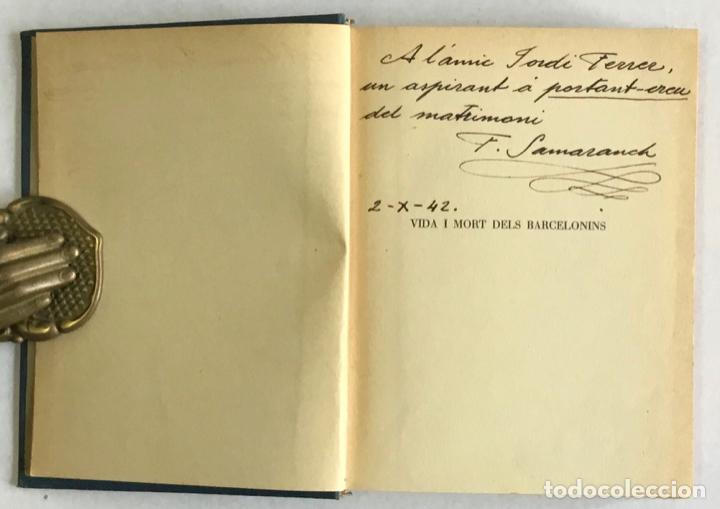 A l'amic Jordi Ferrer,
un aspirant á portant-creu
del matrimoni
F. Samaranch
2-X-42.
VIDA I MORT DELS BARCELONINS
todocoleccion